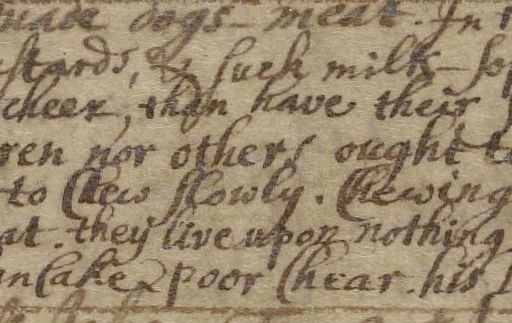 dogs meat. In
& suck milk
cheer, than have their
ren nor others ought t
to Chew slowly. Chewing
at. they live upon nothing
ncake & poor Chear. his